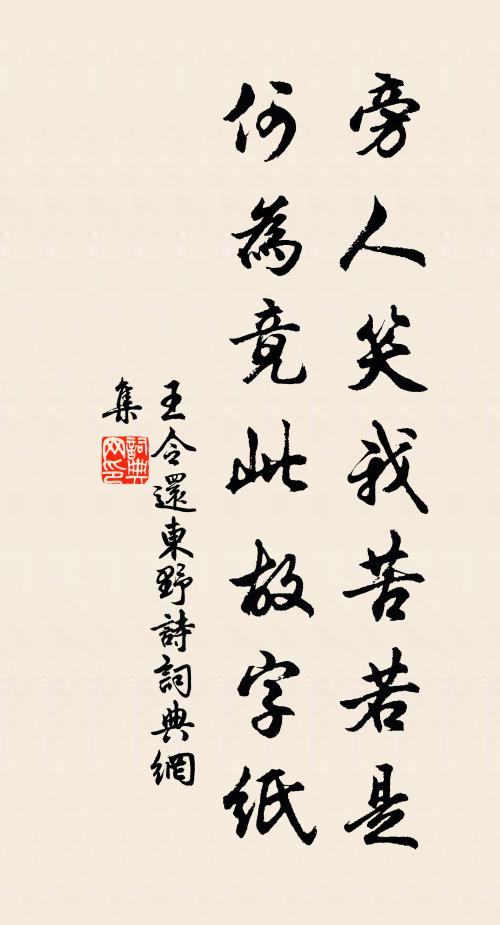 旁人笑我苦若是
何為竟此故字紙
王令還東野詩詞典網
集
詞典
网印